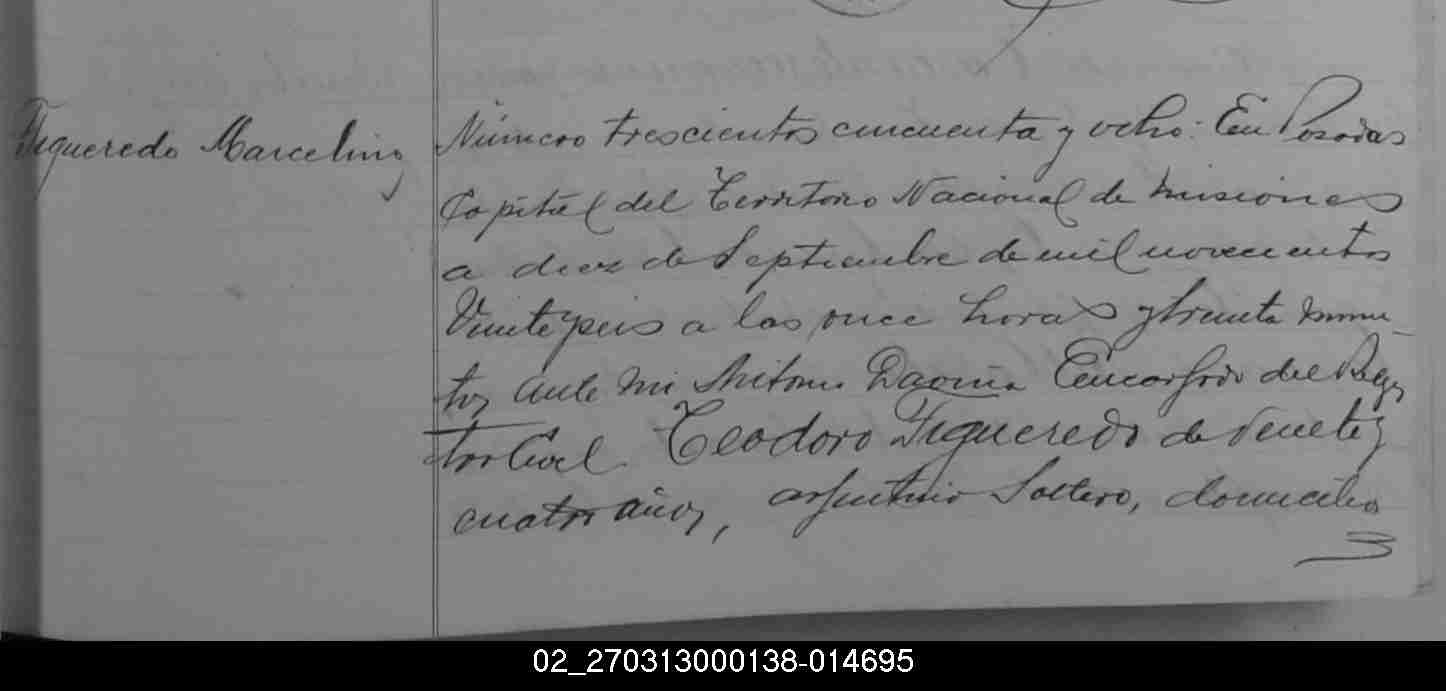 Figueredo Marcelino
Número trescientos cincuenta y ocho: En Posadas
Capital del Territorio Nacional de Misiones
a diez de Septiembre de mil novecientos
Veinteyseis a las once horas y treinta minu-
tos ante mi Encargado del Regis
tro Civil Teodoro Figueredo de veinte y
cuatro años, argentino Soltero, domicilia
02_270313000138-014695